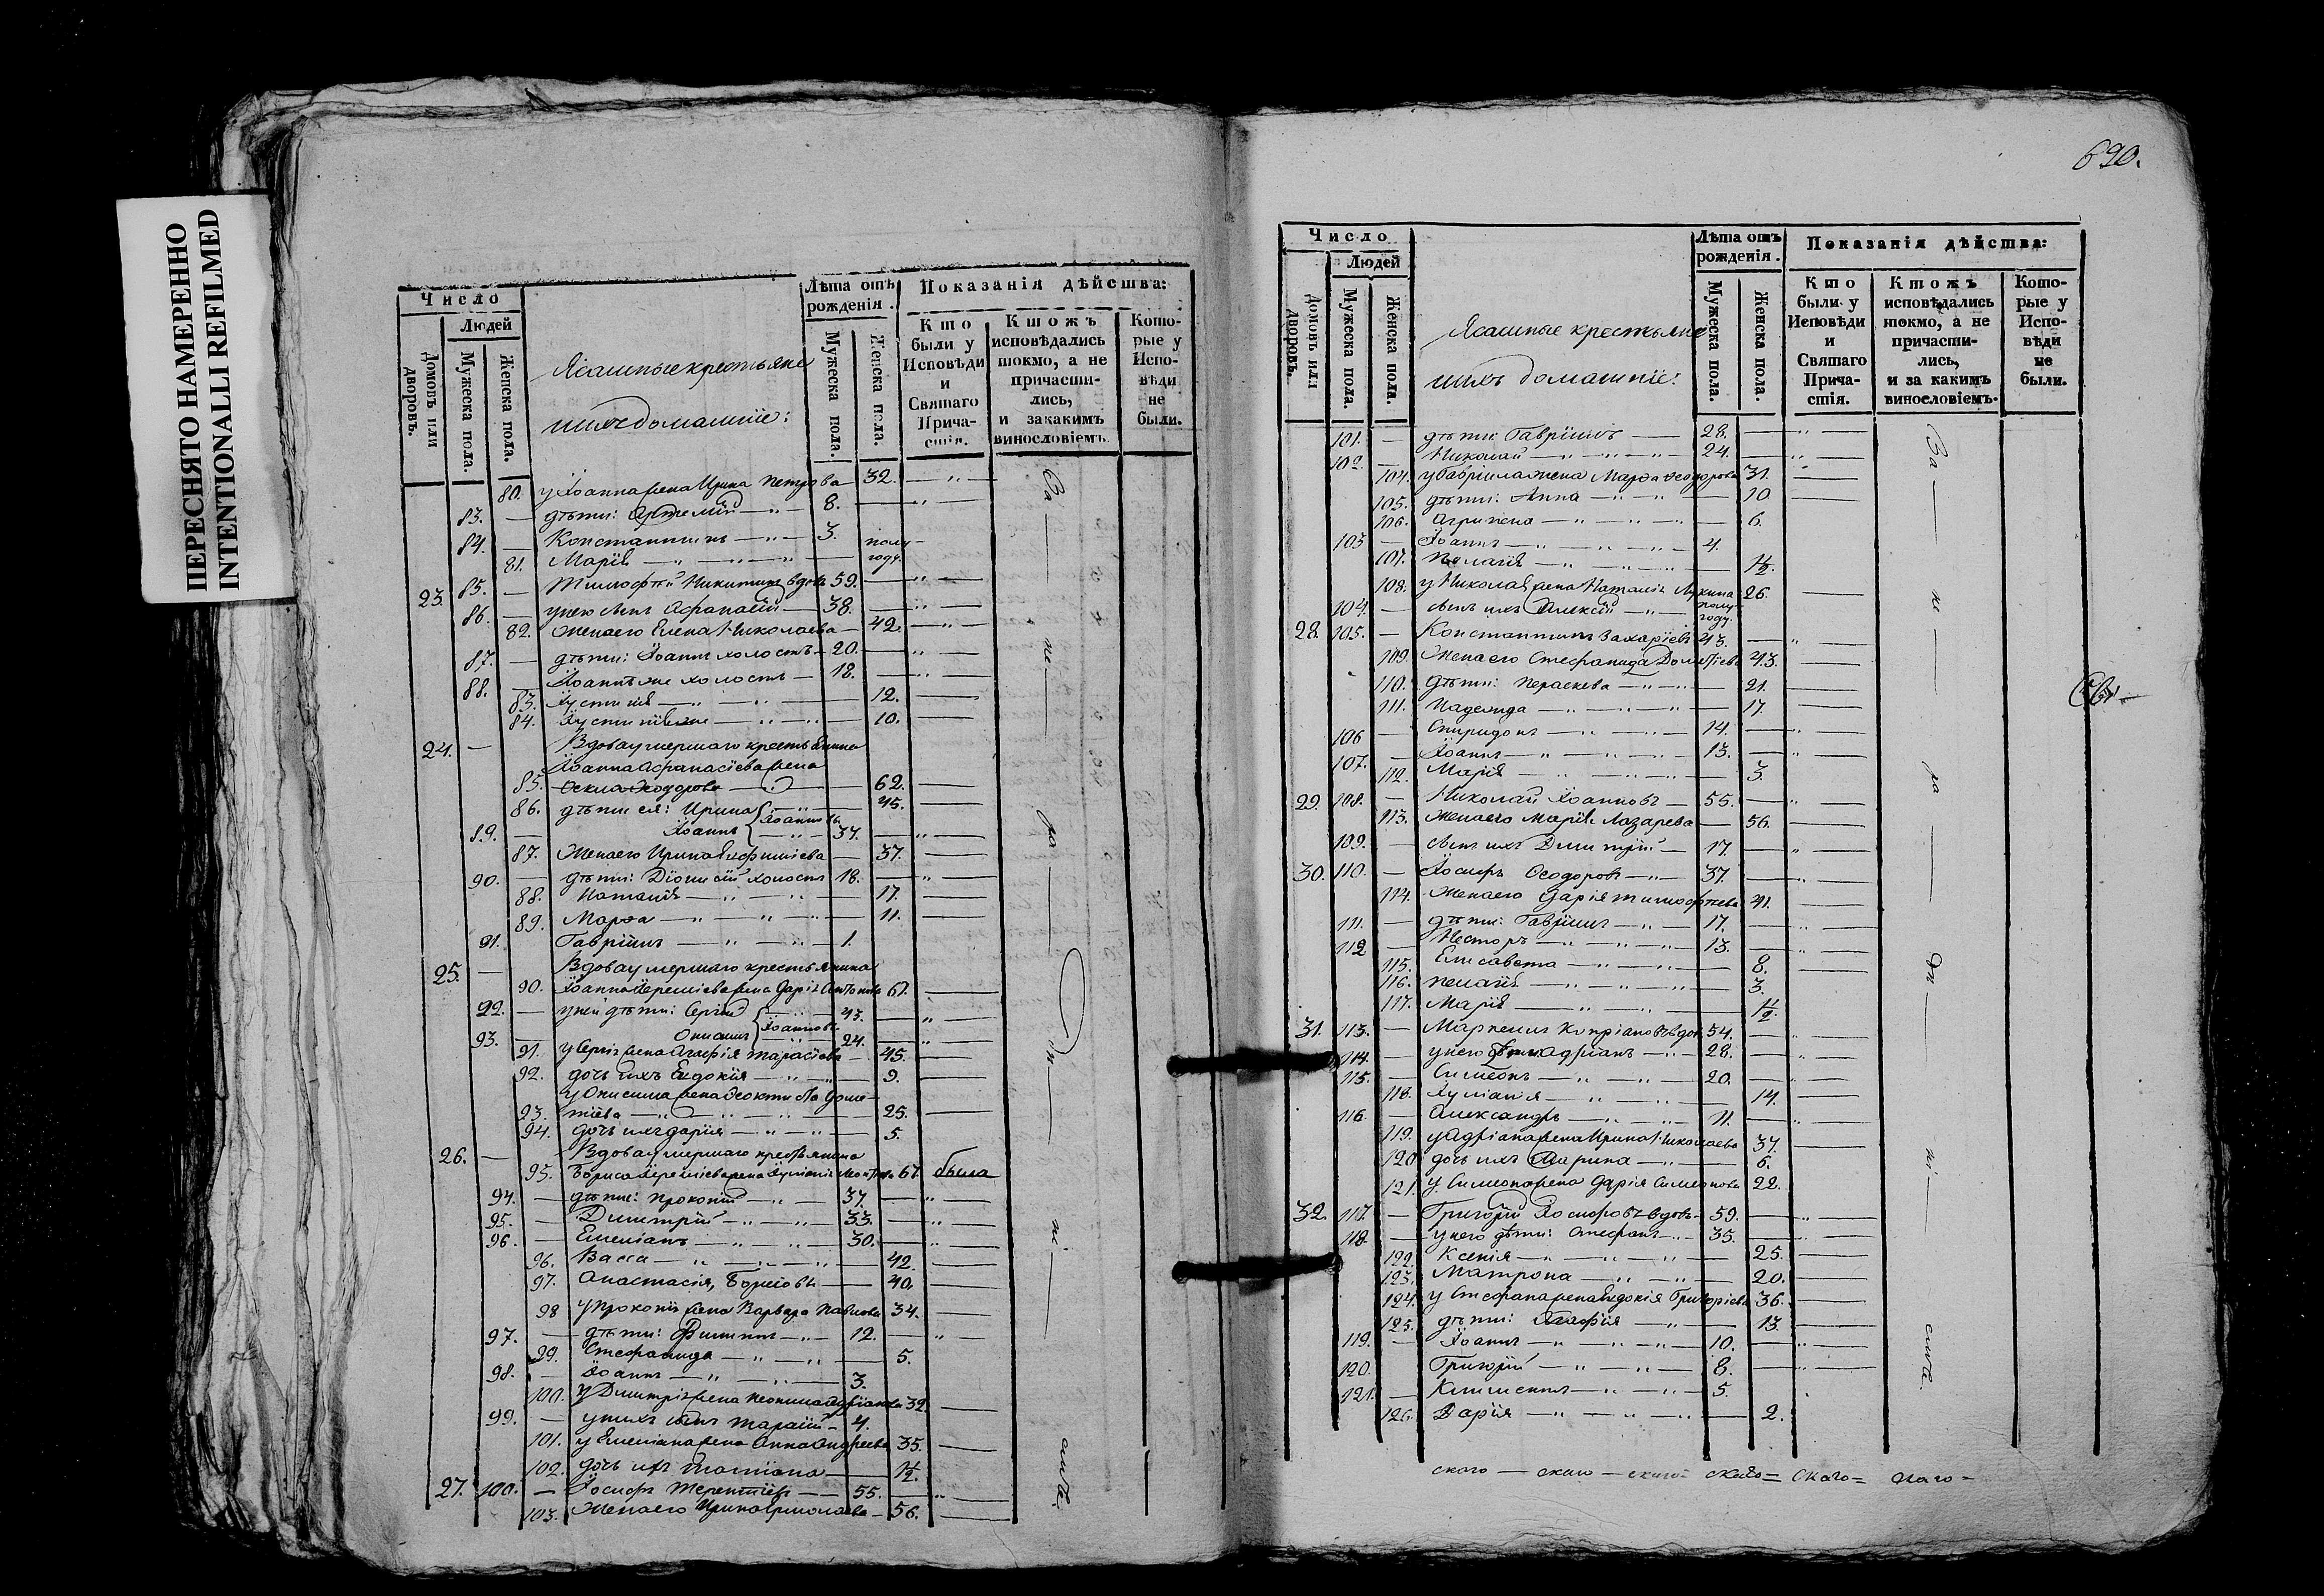 ПЕРЕСНЯТО НАМЕРЕННО
INTENTIONALLI REFILMED
Число
Людей
Домовъ или дворовъ.
Мужеска пола.
Женска пола.
Ясашные крестьяне
и ихъ домашніе:
Лѣта отъ рожденія.
Мужеска пола.
Женска пола.
Показанія дѣйства:
Кто были у Исповѣди и Святаго Прича-стія.
Ктожъ исповѣдались токмо, а не причасти-лись, и закакимъ винословіемъ.
Кото-рые у Испо-вѣди не были.
80. у Іоанна жена Ирина Петрова 32. — " —
83. — дѣти: Артемій — " — 8. — " —
84. — Константинъ — " — 3.
81. Марія — " — " — полу-году.
23. 85. — Тимофей Никитинъ вдовъ 59. — " —
86. — у него сынъ Афанасій — 38. — " —
82. Жена его Елена Николаева — 42. — " —
87. — дѣти: Іоаннъ холостъ — 20. — " —
88. — Іоаннъ же холостъ — 18. — " —
83. Іустинія — " — 12. —
84. Іустинія же — " — " — 10. —
24. — Вдова умершаго крестьянина
Іоанна Афанасіева жена
85. Феодорова — " — 62. —
86. дѣти ея: Ирина — " — 45. —
Іоанновы
89. — Іоаннъ — " — 37. — " —
87. Жена его Ирина — 37. —
90. — дѣти: Діонисій холостъ 18. — " —
88. Наталія — " — " — 17. —
89. Марѳа — " — " — " — 11. —
91. Гавріилъ — " — " — 1.
25. — Вдова умершаго крестьянина
90. Іоанна Іереміева жена Дарія 67. —
92. — у ней дѣти: Сергій — " — 43. — " —
Іоанновы
93. — Онисимъ — " — 24. — " —
91. у Сергія жена Агафія Тарасіева — 45. —
92. дочь ихъ Евдокія — " — " — 9. —
у Онисима жена Домe-
93. тіева — " — " — " — 25. —
94. дочь ихъ Дарія — " — " — 5.
26. — Вдова умершаго крестьянина
95. Бориса Іереміева жена 67. была
94. — дѣти: Прокопій — " — 37. — " —
95. — Димитрій — " — " — 33. — " —
96. — Емеліанъ — " — " — 30. — " —
96. Васса — " — " — " — 42. —
97. Анастасія, Борисовы — 40. —
98 у Прокопія жена Варвара Павлова 34. —
97. — дѣти: Филиппъ — " — 12. — " —
99. Стефанида — " — " — 5.
98. — Іоаннъ — " — " — 3.
100. у Димитрія жена 32. —
99. — у нихъ сынъ Тарасій — 4.
101. у Емеліана жена Анна Андреева 35. —
102. дочь ихъ Татіана — 1/2.
27. 100. — Іосифъ Терентіевъ — 55. — " —
103. Жена его Ирина Ермолаева — 56. —
За не ра ди ні емъ.
690.
Число
Людей
Домовъ или дворовъ.
Мужеска пола.
Женска пола.
Ясашные крестьяне
и ихъ домашніе:
Лѣта отъ рожденія.
Мужеска пола.
Женска пола.
Показанія дѣйства:
Кто были у Исповѣди и Святаго Прича-стія.
Ктожъ исповѣдались токмо, а не причасти-лись, и за какимъ винословіемъ.
Кото-рые у Испо-вѣди не были.
101. — дѣти: Гавріилъ — 28. — " —
102. — Николай — " — " — 24. — " —
104. у Гавріила жена Марѳа Феодорова 31. —
105. дѣти: Анна — " — " — 10. —
106. Агрипена — " — " — " — 6.
103 — Іоаннъ — " — " — " — 4.
107. Пелагія — " — " — " — 1/2.
108. у Николая жена Наталія Лукина 26. —
104. — сынъ ихъ Алексѣй — " — полу-году.
28. 105. — Константинъ Захаріевъ 43. — " —
109. Жена его Стефанида Дометіева 43. —
110. Дѣти: Параскева — " — " — 21. —
111. Надежда — " — " — " — 17. —
106 — Спиридонъ — " — " — 14. — " —
107. — Іоаннъ — " — " — " — 13. — " —
112. Марія — " — " — " — 3.
29. 108. — Николай Іоанновъ — 55. — " —
113. Жена его Марія Лазарева — 56. —
109. — сынъ ихъ Димитрій — 17. — " —
30. 110. — Іосифъ Феодоровъ — " — 37. — " —
114. Жена его Дарія Тимофѣева 41. —
111. — дѣти: Гавріилъ — " — 17. — " —
112 — Несторъ — " — " — " — 13. — " —
115. Елисавета — " — " — " — 8. —
116. Пелагія — " — " — " — 3.
117. Марія — " — " — 1/2.
31. 113. — Кипріановъ вдов. 54. — " —
114. — у него дѣти: Адріанъ — " — 28. — " —
115. — Симеонъ — " — " — 20. — " —
118. Іуліанія — " — " — 14. —
116. — Александръ — " — " — 11. — " —
119. у Адріана жена Ирина Николаева 37. —
120 дочь ихъ Марина — " — 6.
121. у Симеона жена Дарія Симеонова 22. —
32. 117. — Григорій Іосифовъ вдовъ — 59. — " —
118. — у него дѣти: Стефанъ — " — 35. — " —
122. Ксенія — " — " — " — 25. —
123. Матрона — " — " — 20. —
124. у Стефана жена Евдокія Григоріева 36. —
125. дѣти: Агафія — " — 13. —
119. — Іоаннъ — " — " — " — 10. — " —
120. Григорій — " — " — " — 8. — " —
121. — Климентъ — " — " — 5.
126. Дарія — " — " — " — 2.
За не ра ди ні емъ.
скаго — скаго — скаго — скаго = скаго = скаго —